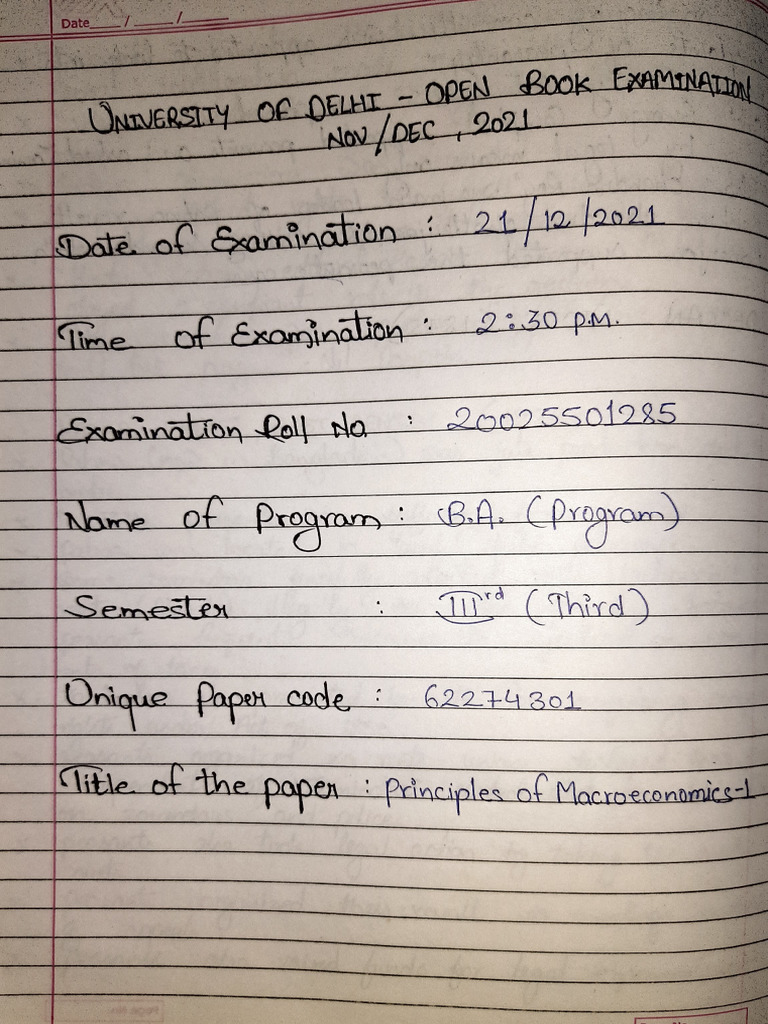 Date___/___/___
UNIVERSITY OF DELHI - OPEN BOOK EXAMINATION
NOV/DEC, 2021
Date of Examination : 21/12/2021
Time of Examination : 2:30 P.M.
Examination Roll No : 20025501285
Name of Program : B.A. (Program)
Semester : IIIrd (Third)
Unique Paper code : 62274301
Title of the paper : Principles of Macroeconomics-1